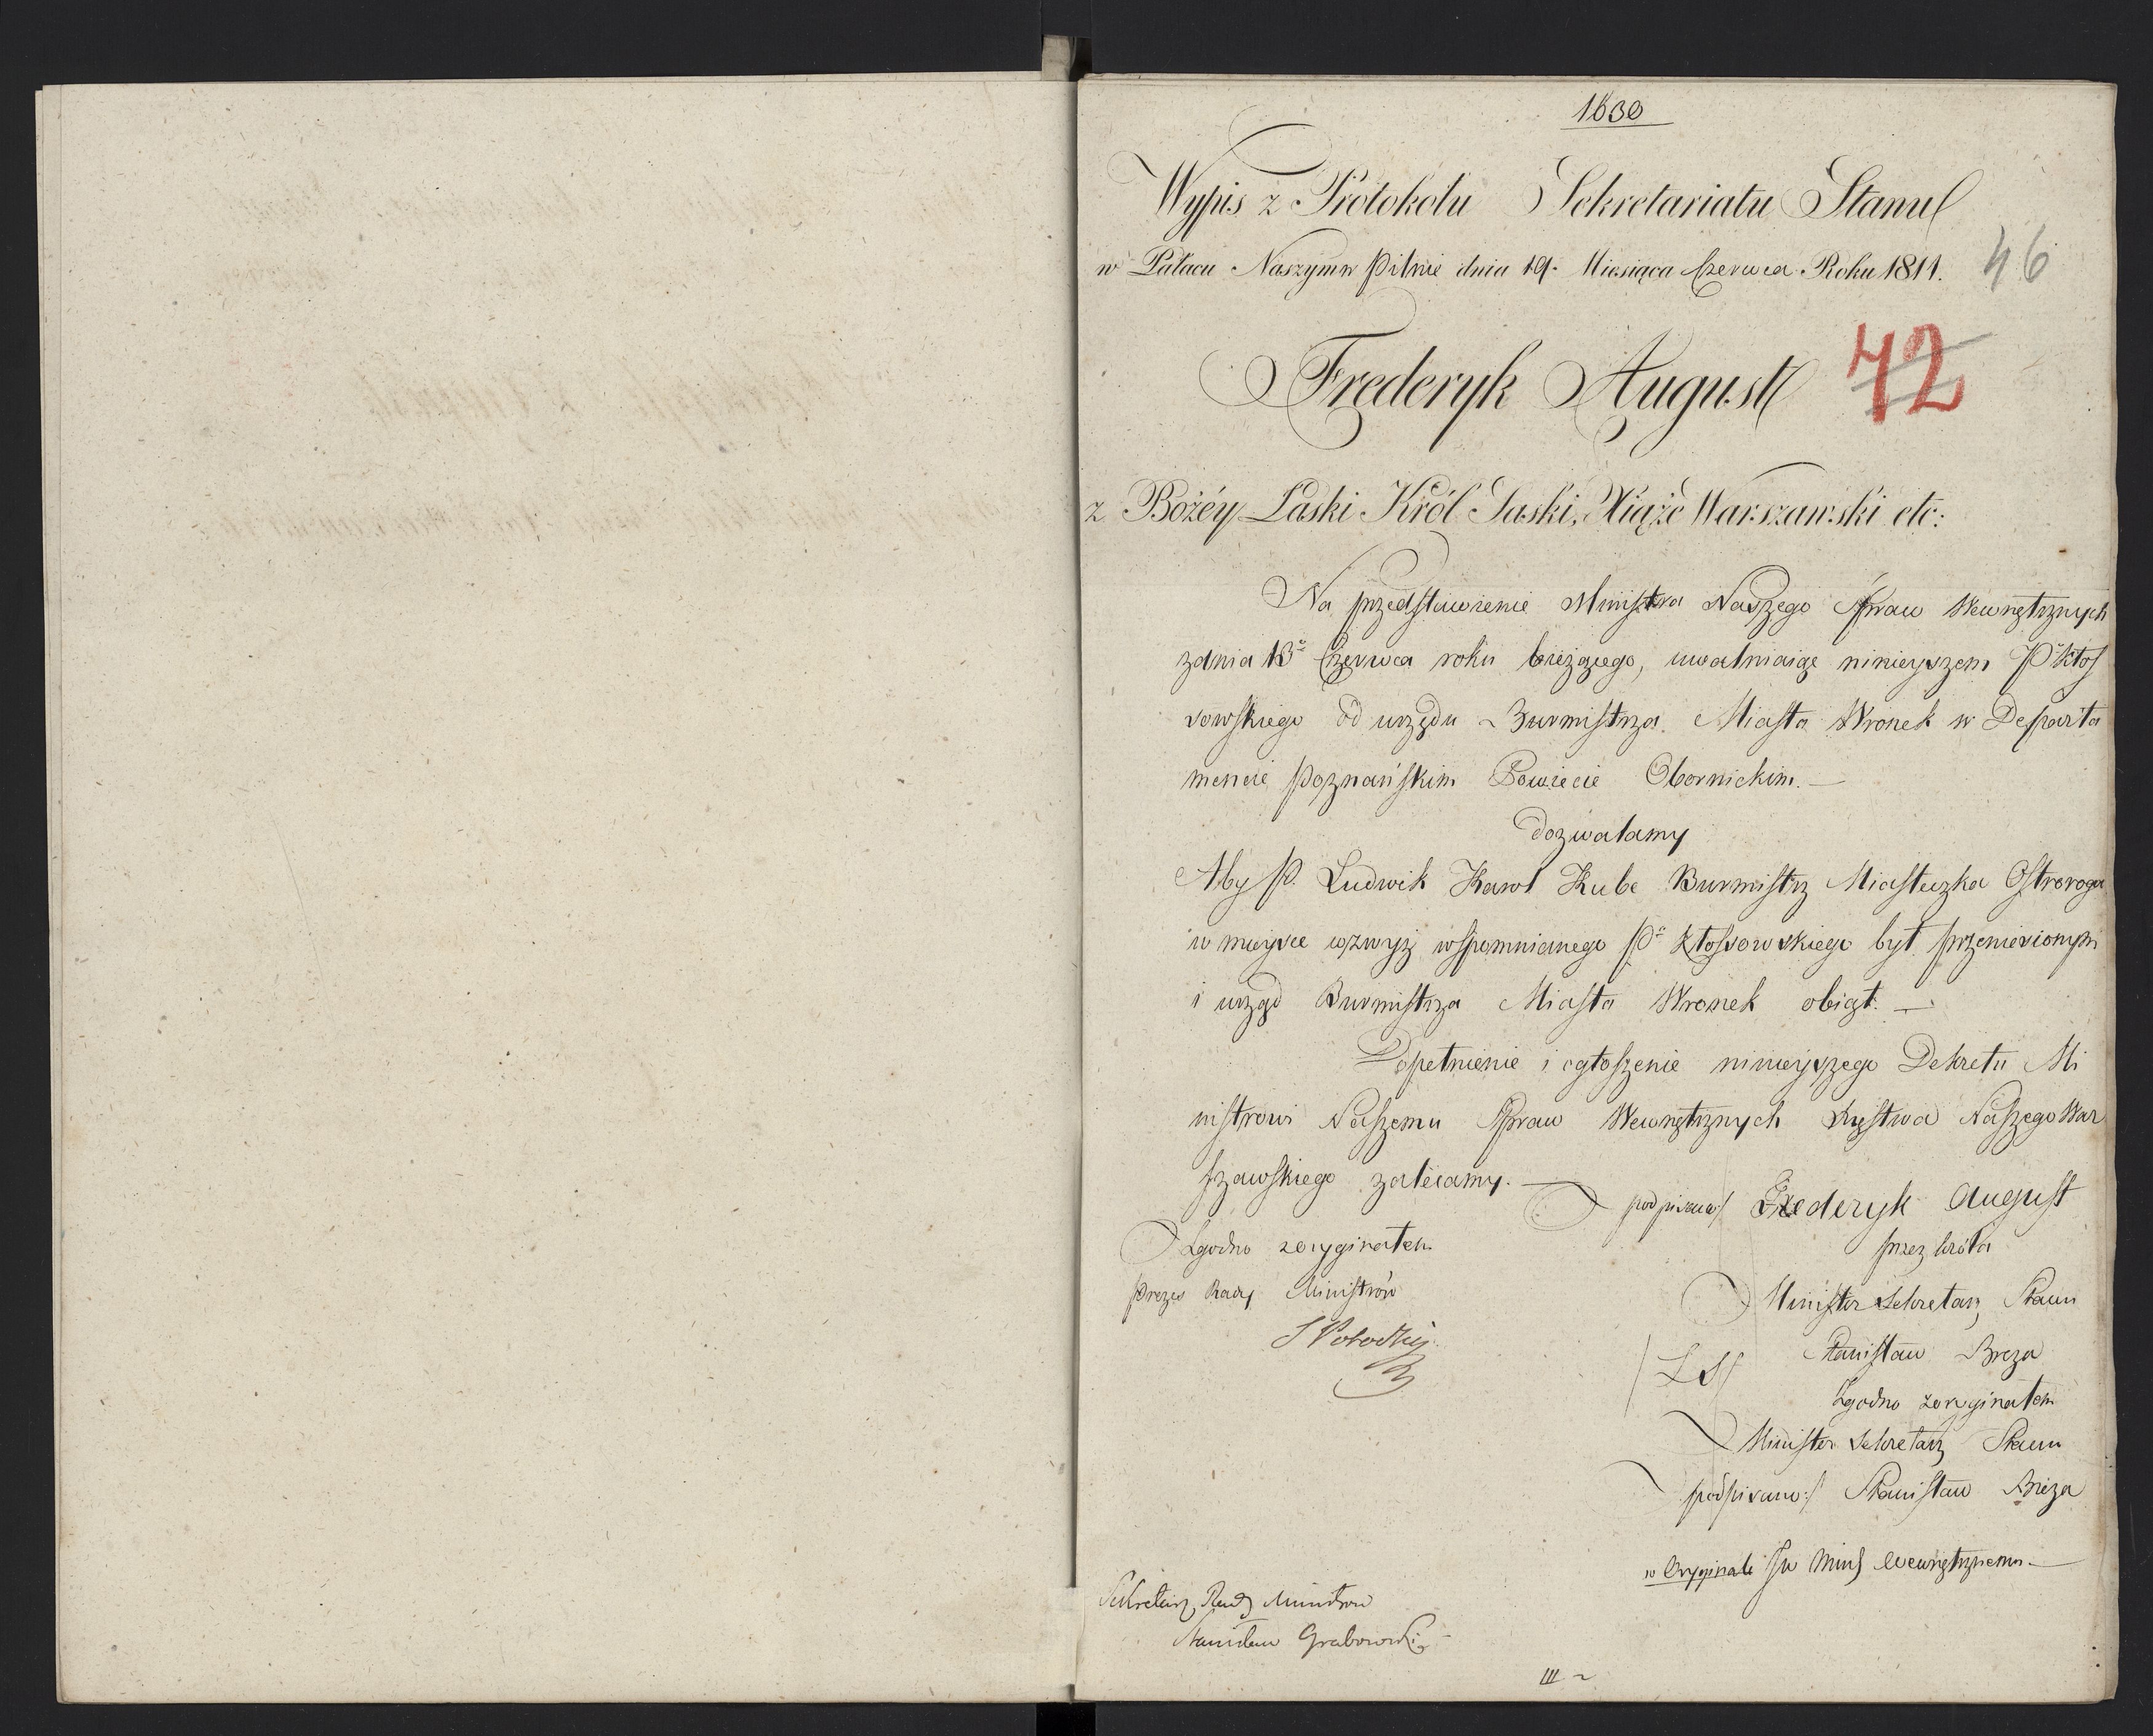 1630
Wypis z Protokołu Sekretariatu Stanu
w Pałacu Naszym w Pilnic dnia 19. Miesiąca Czerwca Roku 1811.
46
Frederyk August
42
z Bożéy Łaski Król Saski, Xiąże Warszawski etc:
Na przedstawienie Ministra Naszego Spraw Wewnętrznych
z dnia 13º Czerwca roku bieżącego, uwalniaiąc ninieyszem Pª Kłos
sowskiego od urzędu Burmistrza Miasta Wronek w Departa
mencie Poznańskim Powiecie Obornickim. —
dozwalamy
Aby P. Ludwik Karol Kube Burmistrz Miasteczka Ostroroga
w mieysce wzwyż wspomnianego Pª Kłossowskiego był przeniesionym
i urząd Burmistrza Miasta Wronek obiął. —
Dopełnienie i ogłoszenie ninieyszego Dekretu Mi
nistrowi Naszemu Spraw Wewnętrznych Xięstwa Naszego War
szawskiego zalecamy. —
podpisano/ Frederyk August
przez króla
Minister Sekretarz Stanu
/LS/ Stanisław Breza
Zgodno z oryginałem
Minister Sekretarz Stanu
podpisano:/ Stanisław Breza
Zgodno z oryginałem
Prezes Rady Ministrów
S Potocki
w Oryginale JW Mins Wewnętrznemu —
Sekretarz Rady Ministrow
Stanisław Grabowski
III